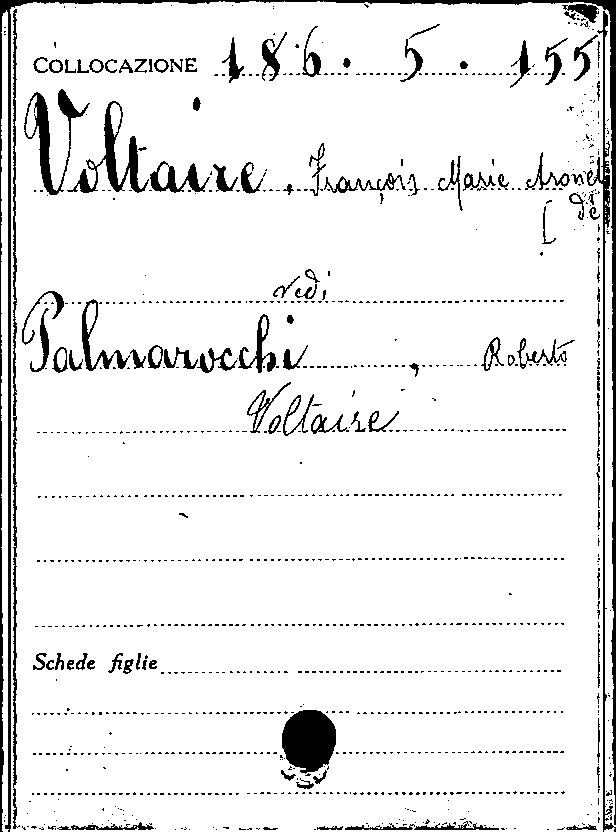 COLLOCAZIONE 186. 5. 155
Voltaire. François Marie Arouet
[de
vedi
Palmarocchi, Roberto
Voltaire
Schede figlie